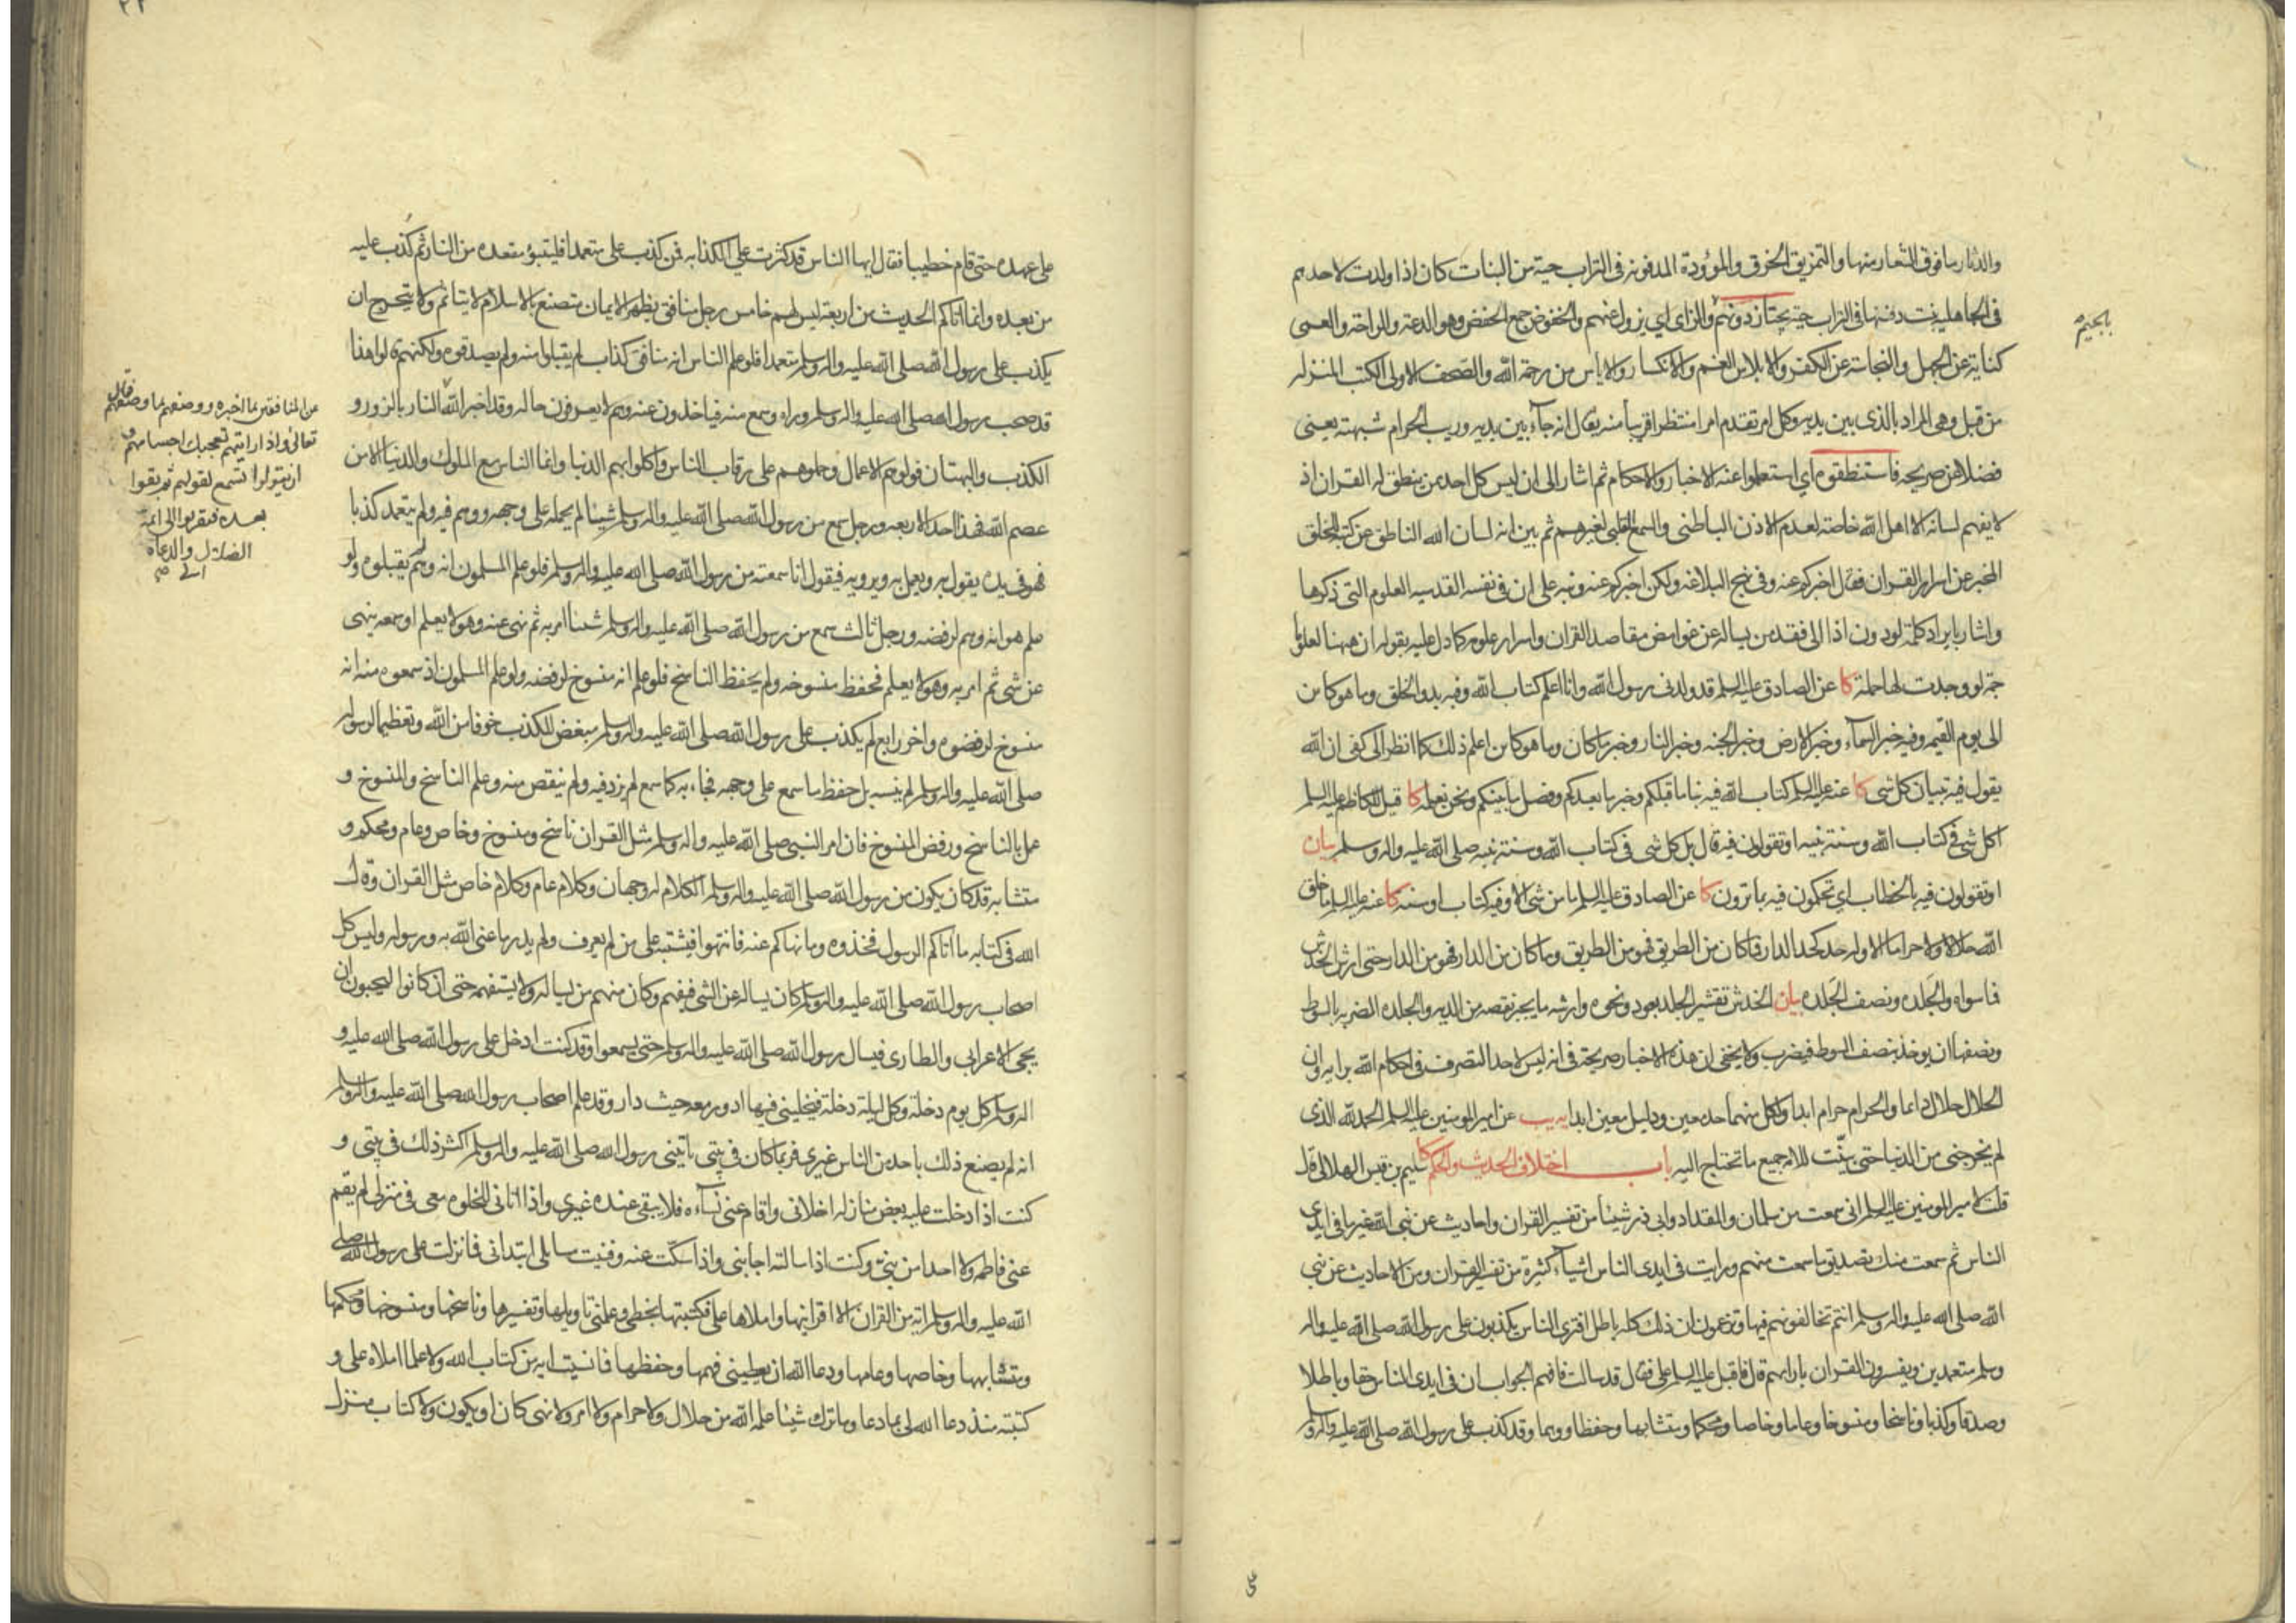 والدثار ما فوق الشعار منها والتمزيق الخرق والموؤدة المدفونة في التراب حية من البنات كان اذا ولدت لاحدهم
في الجاهلية بنت دفنها في التراب حية يجتاز دونهم والزاي اي يزول عنهم والخفوض جمع الخفض وهو الدعة والراحة والعمى
كناية عن الجهل والنجاسة عن الكفر والابلاس الغم والانكسار والاياس من رحمة الله والصحف الاولى الكتب المنزلة
من قبل وهي المراد بالذي بين يديه وكل امر تقدم امرا منتظرا قريبا منه يقال انه جاء بين يديه وريب الحرام شبهته يعني
فضلا عن صريحه فاستنطقوه اي استعلموا عنه الاخبار والاحكام ثم اشار الى ان ليس كل احد ممن ينطق له القران اذ
لا يفهم لسانه الا اهل الله خاصة لعدم الاذن الباطني والسمع القلبي لغيرهم ثم بين انه لسان الله الناطق عن كتبه للخلق
المخبر عن اسرار القران فقال اخبركم عنه وفي نهج البلاغه ولكن اخبركم عنه ونبه على ان في نفسه القدسيه العلوم التي ذكرها
واشار بايراد كلمة لو دون اذا الى فقد من يساله عن غوامض مقاصد القران واسرار علومه كما دل عليه بقوله ان ههنا لعلوما
جمة لو وجدت لها حملة كا عن الصادق عليه السلم قد ولدني رسول الله وانا اعلم كتاب الله وفيه بدو الخلق وما هو كائن
الى يوم القيمه وفيه خبر السماء وخبر الارض وخبر الجنه وخبر النار وخبر ما كان وما هو كائن اعلم ذلك كما انظر الى كفي ان الله
يقول فيه تبيان كل شي كا عنه عليه السلم كتاب الله فيه نبا ما قبلكم وخبر ما بعدكم وفصل ما بينكم ونحن نعلمه كا قيل للكاظم عليه السلم
اكل شي في كتاب الله وسنة نبيه او تقولون فيه قال بل كل شي في كتاب الله وسنة نبيه صلى الله عليه واله وسلم بيان
او تقولون فيه بالخطاب اي تحكمون فيه بما ترون كا عن الصادق عليه السلم ما من شي الا وفيه كتاب او سنه كا عنه عليه السلم ما خلق
الله حلالا ولا حراما الا وله حد كحد الدار فما كان من الطريق فهو من الطريق وما كان من الدار فهو من الدار حتى ارش الخدش
فما سواه والجلده ونصف الجلده بيان الخدش تقشير الجلد بعود ونحوه وارشه ما يجبر نقصه من الديه والجلده الضربه بالسوط
ونصفها ان يوخذ بنصف السوط فيضرب ولا يخفى ان هذه الاخبار صريحة في انه ليس لاحد التصرف في احكام الله برايه وان
الحلال حلال دائما والحرام حرام ابدا ولكل منهما حد معين ودليل معين ابدا يه يب عن امير المومنين عليه السلم الحمد لله الذي
لم يخرجني من الدنيا حتى بينت للامة جميع ما تحتاج اليه باب اختلاف الحديث والحكم كا سليم بن قيس الهلالي قال
قلت لامير المومنين عليه السلم اني سمعت من سلمان والمقداد وابي ذر شيئا من تفسير القران واحاديث عن نبي الله غير ما في ايدي
الناس ثم سمعت منك تصديق ما سمعت منهم ورايت في ايدي الناس اشياء كثيرة من تفسير القران ومن الاحاديث عن نبي
الله صلى الله عليه واله وسلم انتم تخالفونهم فيها وتزعمون ان ذلك كله باطل افترى الناس يكذبون على رسول الله صلى الله عليه واله
وسلم متعمدين ويفسرون القران بارائهم قال فاقبل عليه السلم علي فقال قد سالت فافهم الجواب ان في ايدي الناس حقا وباطلا
وصدقا وكذبا وناسخا ومنسوخا وعاما وخاصا ومحكما ومتشابها وحفظا ووهما وقد كذب على رسول الله صلى الله عليه واله وسلم
بالجيم
على عهده حتى قام خطيبا فقال ايها الناس قد كثرت علي الكذابه فمن كذب علي متعمدا فليتبوؤ مقعده من النار ثم كذب عليه
من بعده وانما اتاكم الحديث من اربعة ليس لهم خامس رجل منافق يظهر الايمان متصنع بالاسلام لا يتاثم ولا يتحرج ان
يكذب على رسول الله صلى الله عليه واله وسلم متعمدا فلو علم الناس انه منافق كذاب لم يقبلوا منه ولم يصدقوه ولكنهم قالوا هذا
قد صحب رسول الله صلى الله عليه واله وسلم وراه وسمع منه فياخذون عنه وهم لا يعرفون حاله وقد اخبر الله النار بالزور و
الكذب والبهتان فولوهم الاعمال وحملوهم على رقاب الناس واكلوا بهم الدنيا وانما الناس مع الملوك والدنيا الا من
عصم الله فهذا احد الاربعه ورجل سمع من رسول الله صلى الله عليه واله وسلم شيئا لم يحمله على وجهه ووهم فيه ولم يتعمد كذبا
فهو في يده يقول به ويعمل به ويرويه فيقول انا سمعته من رسول الله صلى الله عليه واله وسلم فلو علم المسلمون انه وهم لم يقبلوه ولو
علم هو انه وهم لرفضه ورجل ثالث سمع من رسول الله صلى الله عليه واله وسلم شيئا امر به ثم نهى عنه وهو لا يعلم او سمعه ينهى
عن شي ثم امر به وهو لا يعلم فحفظ منسوخه ولم يحفظ الناسخ فلو علم انه منسوخ لرفضه ولو علم المسلمون اذ سمعوه منه انه
منسوخ لرفضوه واخر رابع لم يكذب على رسول الله صلى الله عليه واله وسلم مبغض للكذب خوفا من الله وتعظيما لرسوله
صلى الله عليه واله وسلم لم ينسه بل حفظ ما سمع على وجهه فجاء به كما سمع لم يزد فيه ولم ينقص منه وعلم الناسخ والمنسوخ و
عمل بالناسخ ورفض المنسوخ فان امر النبي صلى الله عليه واله وسلم مثل القران ناسخ ومنسوخ وخاص وعام ومحكم و
متشابه قد كان يكون من رسول الله صلى الله عليه واله وسلم الكلام له وجهان وكلام عام وكلام خاص مثل القران وقال
الله في كتابه ما اتاكم الرسول فخذوه وما نهاكم عنه فانتهوا فيشتبه على من لم يعرف ولم يدر ما عنى الله به ورسوله وليس كل
اصحاب رسول الله صلى الله عليه واله وسلم كان يساله عن الشي فيفهم وكان منهم من يساله ولا يستفهمه حتى ان كانوا ليحبون ان
يجي الاعرابي والطاري فيسال رسول الله صلى الله عليه واله وسلم حتى يسمعوا وقد كنت ادخل على رسول الله صلى الله عليه و
اله وسلم كل يوم دخلة وكل ليلة دخلة فيخليني فيها ادور معه حيث دار وقد علم اصحاب رسول الله صلى الله عليه واله وسلم
انه لم يصنع ذلك باحد من الناس غيري فربما كان في بيتي ياتيني رسول الله صلى الله عليه واله وسلم اكثر ذلك في بيتي و
كنت اذا دخلت عليه بعض منازله اخلاني واقام عني نساءه فلا يبقى عنده غيري واذا اتاني للخلوه معي في منزلي لم يقم
عني فاطمه ولا احدا من بنيّ وكنت اذا سالته اجابني واذا سكت عنه وفنيت مسائلي ابتداني فما نزلت على رسول الله صلى
الله عليه واله وسلم اية من القران الا اقرانيها واملاها علي فكتبتها بخطي وعلمني تاويلها وتفسيرها وناسخها ومنسوخها ومحكمها
ومتشابهها وخاصها وعامها ودعا الله ان يعطيني فهمها وحفظها فما نسيت اية من كتاب الله ولا علما املاه علي و
كتبته منذ دعا الله لي بما دعا وما ترك شيئا علمه الله من حلال ولا حرام ولا امر ولا نهي كان او يكون ولا كتاب منزل
عن المنافقين بما اخبره ووصفهم بما وصفهم فقال
تعالى واذا رايتهم تعجبك اجسامهم و
ان يقولوا تسمع لقولهم ثم بقوا
بعده فتقربوا الى ائمة
الضلال والدعاة
الى صح